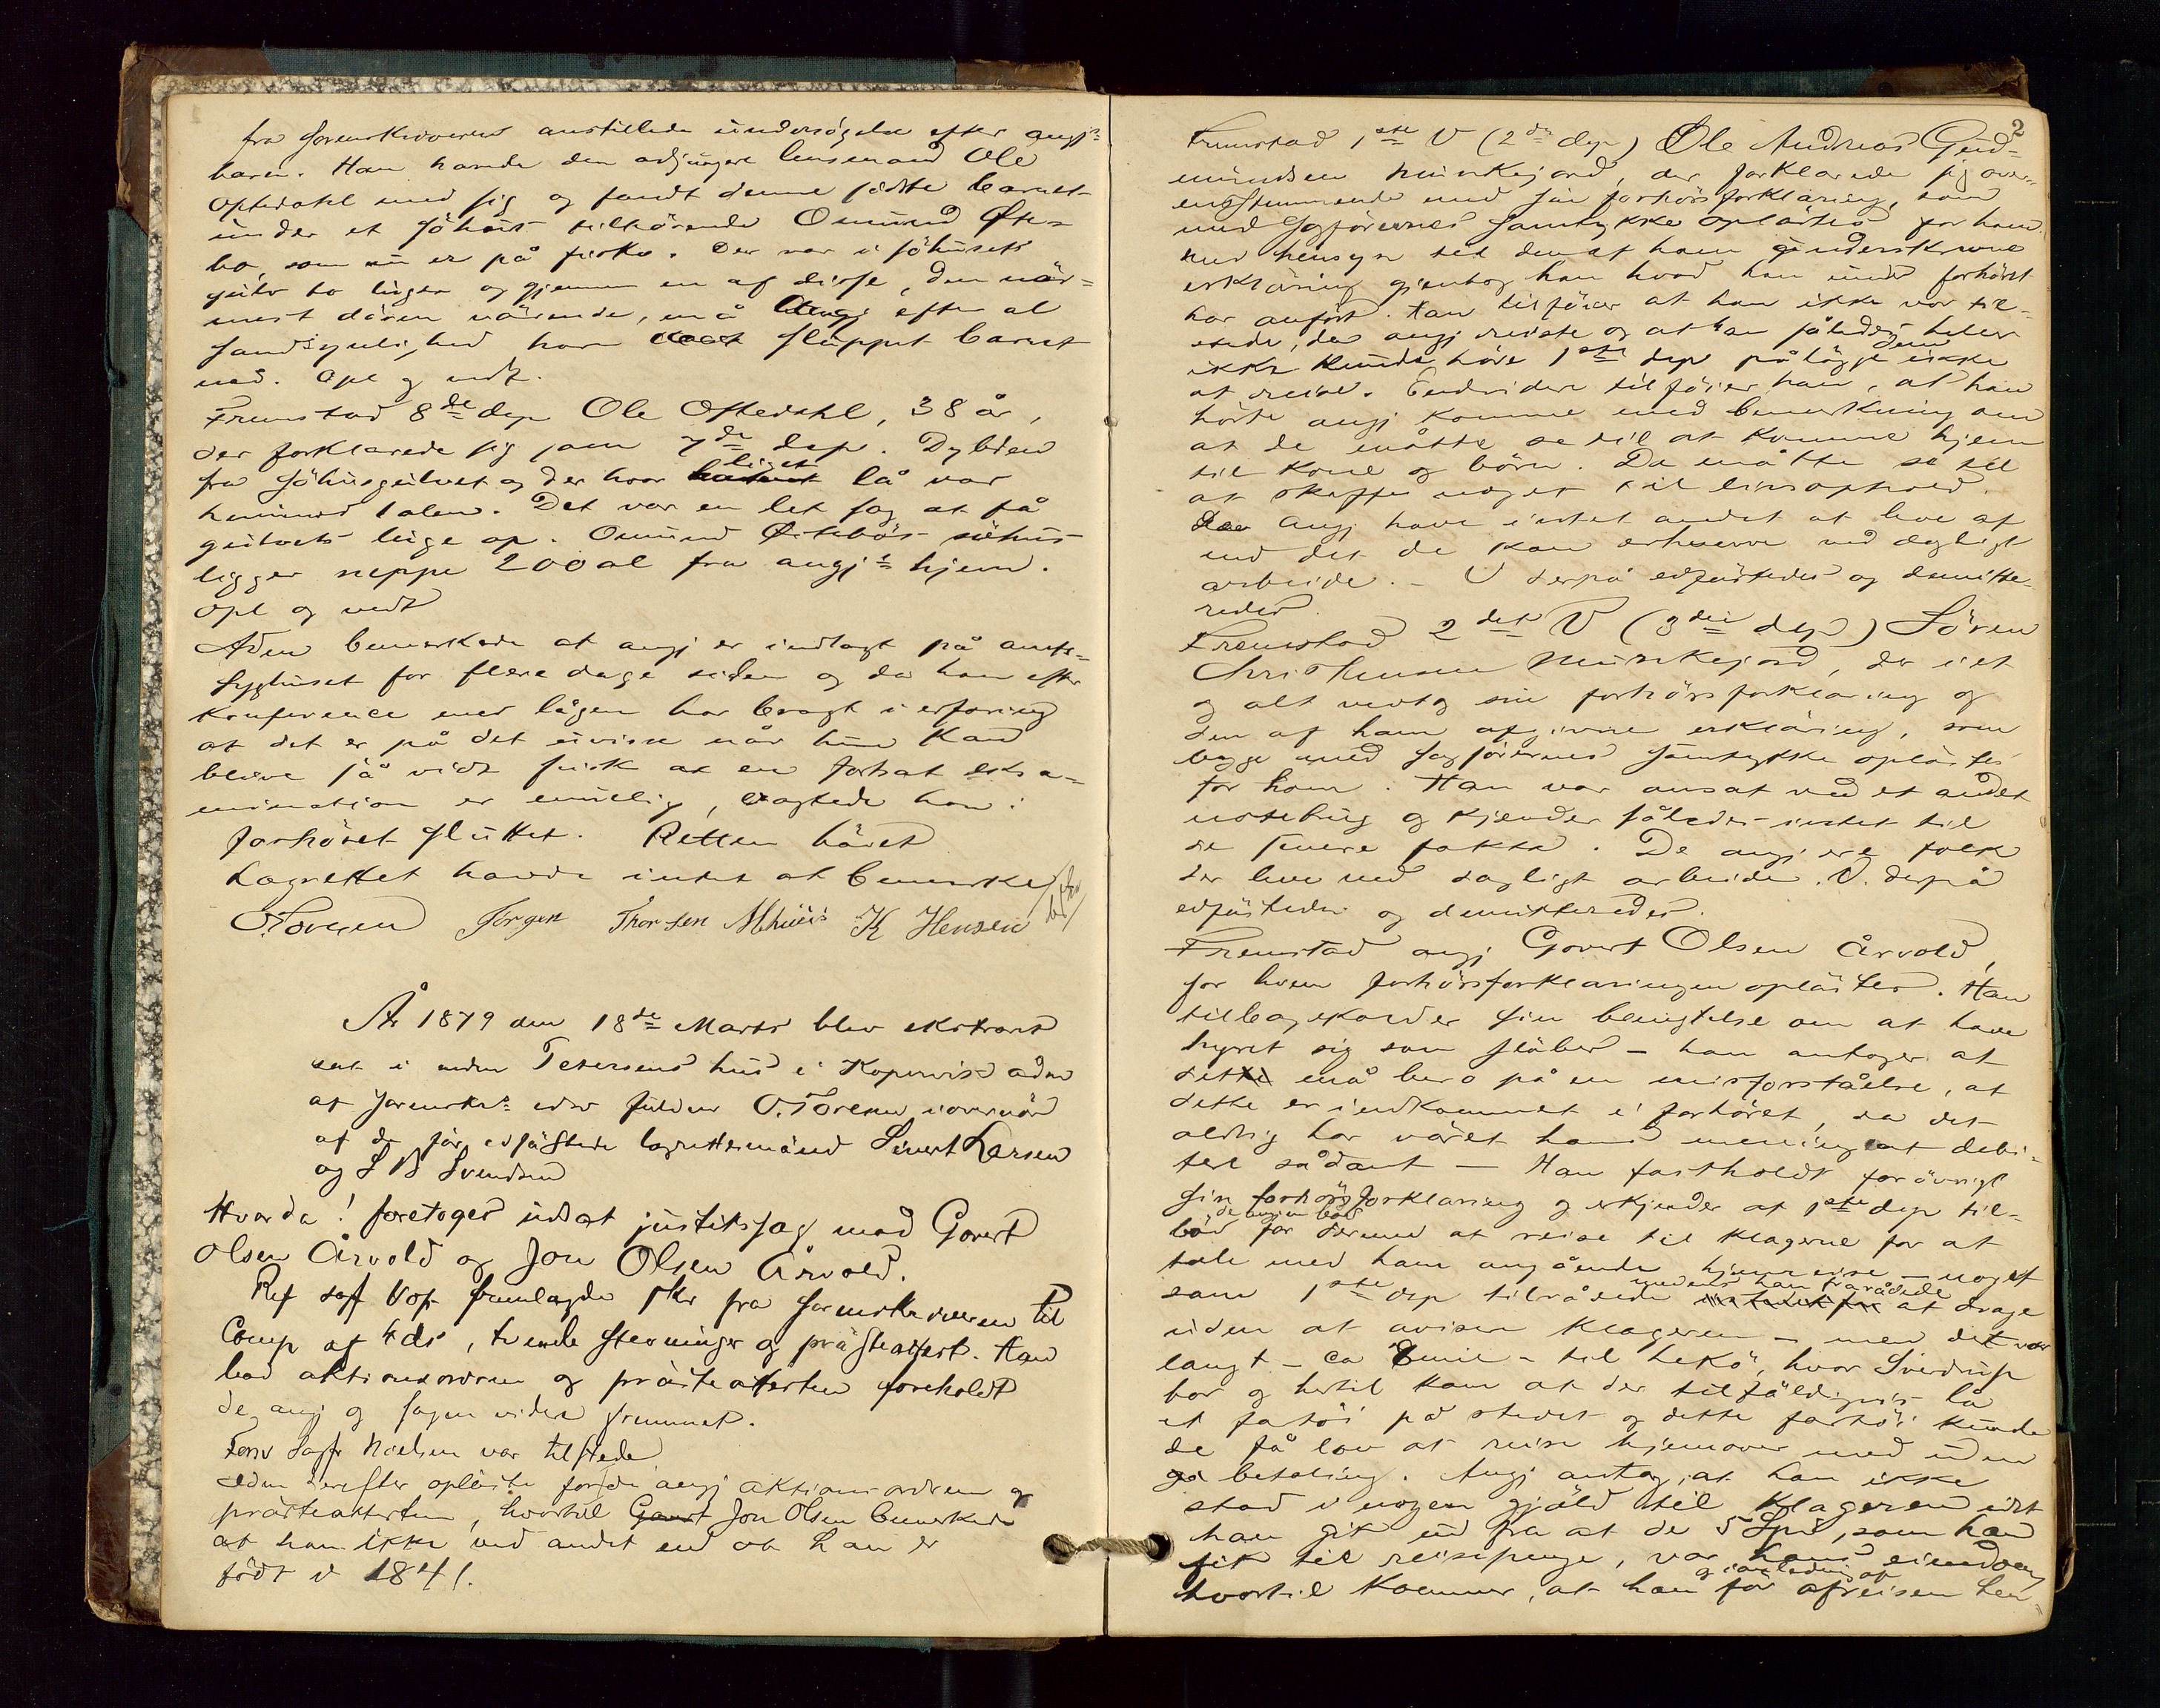 fra sorenskriveren anstillede undersögelse efter angj:
baren. Han havde den adjungere lensmand Ole
Oftedahl med sig og fandt denne födte barnet
under et söhus tilhörende Osmund Öste-
bö, som nu er på fiske. Der var i söhusets
gulv to luger og gjennem en af disse, den när-
mest dören värende, må Angj efter al
sandsynlighed have sluppet barnet
ned. Opl og vedt.
Fremstod 8de dep Ole Oftedahl, 38 år,
der forklarede sig som 7de dep. Dybden
fra söhusgulvet og der hvor liget lå var
henimod 1 alen. Det var en let sag at få
gulvets luge op. Osmund Östebös söhus
ligger neppe 200 al fra angj:s hjem.
Opl og vedt
Adm bemerkede at angj er indlagt på amts-
syghuset for flere dage siden og da han efter
konference med lägen har bragt i erfaring
at det er på det uvisse når hun kan
blive så vidt frisk at en fortsat eksa-
mination er mulig, agtede han:
forhöret sluttet. Retten hävet
Lagrettet havde intet at bemerke
O. Toresen Jörgen Thorsen Mehuus K Hensen
År 1879 den 18de Marts blev ekstraret
sat i Petersens hus i Kopervik adm
af sorenskr: edsv fuldm O. Toresen i overvär
af de för edfästede lagrettemänd Sivert Larsen
og S B Svendsen
Hvor da! foretoges udsat justitssag mod Govert
Olsen Årvold og Jon Olsen Årvold.
Ref saf Vop fremlagde skr fra sorenskriveren til
Comp af 4 ds, tvende stevninger og prästeattest. Han
bad aktionsordren og prästeattesten foreholdt
de angj og sagen videre fremmet.
Forsv Sagf Nielsen var tilstede
Adm derefter opläste for de angj aktionsordren og
prästeattesten, hvortil Govert Jon Olsen bemerkede
at han ikke ved andet end at han er
födt i 1841.
2
Fremstod 1ste V (2det dep) Ole Andreas Gud-
mundsen Munkejord, der forklarede sig over-
ensstemmende med sin forhörsforklaring, som
med sagförernes samtykke oplästes for ham.
Med hensyn til den af ham underskrevne
erkläring gjentog han hvad han under forhöret
har anfört. Han tilföier at han ikke var til-
stede, da angj reiste og at han således heller
ikke kunde höre 1ste dep pålägge dem ikke
at reise. Endvidere tilföier han, at han
hörte angj komme med bemerkning om
at de måtte se til at komme hjem
til kone og börn. De måtte se til
at skaffe noget til livsophold.
De angj have intet andet at leve af
end det de kan erhverve ved dagligt
arbeide. – V derpå edfästedes og demitte-
redes.
Fremstod 2det V (3die dep) Sören
Christensen Munkejord, der i et
og alt vedtog sin forhörsforklaring og
den af ham afgivne erkläring, som
begge med sagförernes samtykke oplästes
for ham. Han var ansat ved et andet
notebrug og kjender således intet til
de senere fakta. De angj ere folk
der leve ved dagligt arbeide. V. derpå
edfästedes og demitteredes.
Fremstod angj Govert Olsen Årvold,
for hvem forhörsforklaringen oplästes. Han
tilbagekalder sin benegtelse om at have
hyret sig som – han antager at
dette må bero på en misforståelse, at
dette er indkommet i forhöret, da det
aldrig har väret hans mening at debi-
tere sådant – Han fastholdt forövrigt
sin forhörsforklaring og erkjender at 1ste dep til-
böd for dermed at reise til klagerne for at
tale med ham angående hjemreise – noget
som 1ste dep tilrådede medens han frarådede at drage
uden at avisere klageren – men det var
langt – ca mil – til Lekö, hvor Sverdrup
bor og hertil kom at der tilfäldigvis lå
et fartöi på stedet og dette fartöi kunde
de få lov at reise hjemover med uden
betaling. Angj antog, at han ikke
stod i nogen gjäld til klageren idet
han git ud fra at de 5 Spd, som han
fik til reisepenge, var hans eiendom
hvortil kommer, at han för afreisen